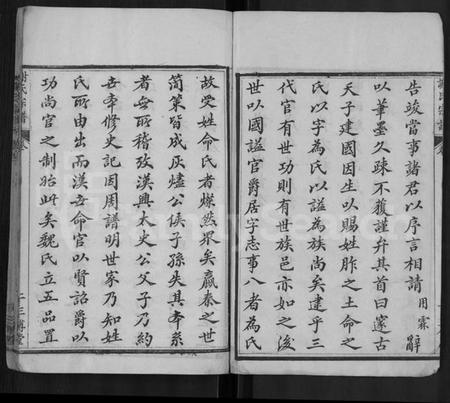 告竣當事諸君以序言相請用霖辭
以筆墨久疎不獲謹弁其首曰邃古
天子建國因生以賜姓胙之土命之
氏以字為氏以謚為族尚矣逮乎三
代官有世功則有世族邑亦如之後
世以國謚官爵居字志事八者為氏
故受姓命氏者燦然眾矣嬴秦之世
简策皆成灰燼公侯子孫失其本系
者無所稽攷漢興太史公父子乃約
世本修史記因周譜明世家乃知姓
氏所由出而漢世命官以賢詔爵以
功尚官之制始此矣魏氏立五品置
謝氏宗譜
卷
二
三